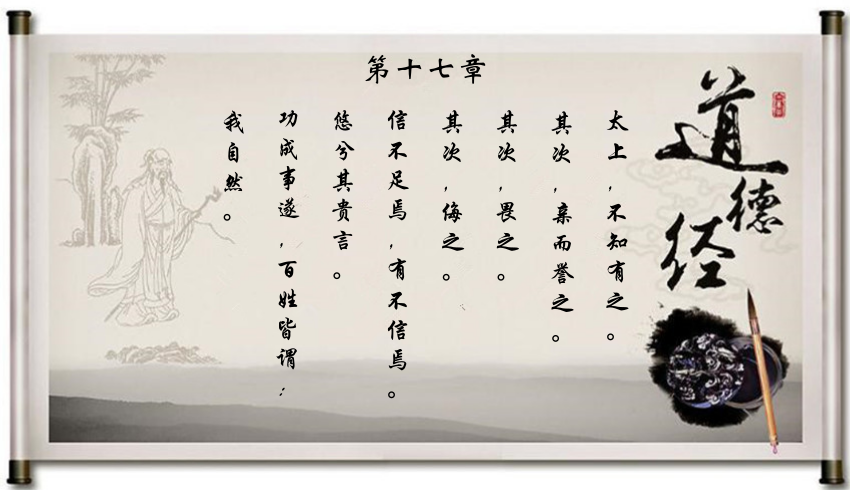 道德经
第十七章
太上,不知有之。
其次,亲而誉之。
其次,畏之。
其次,侮之。
信不足焉,有不信焉。
悠兮其贵言。
功成事遂,百姓皆谓:
我自然。